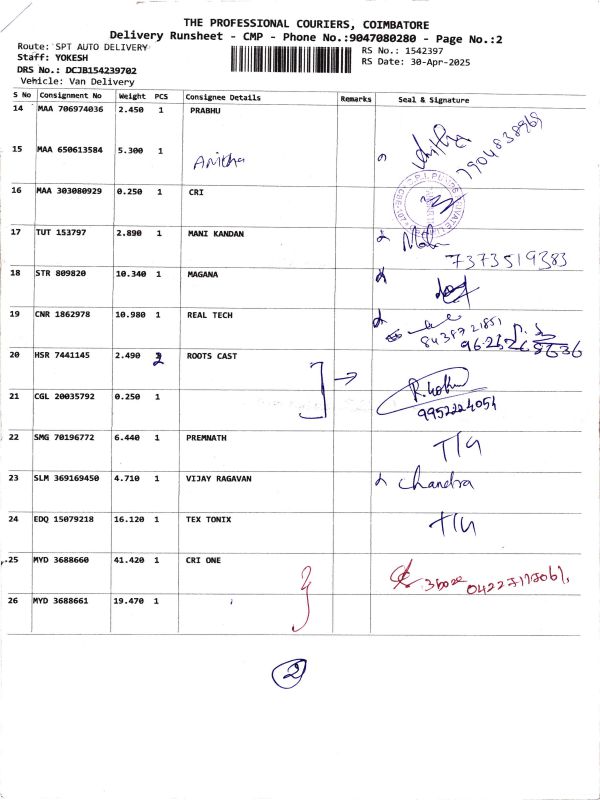 THE PROFESSIONAL COURIERS, COIMBATORE
Delivery Runsheet - CMP - Phone No.:9047080280 - Page No.:2
Route: SPT AUTO DELIVERY
Staff: YOKESH
DRS No.: DCJB154239702
Vehicle: Van Delivery
RS No.: 1542397
RS Date: 30-Apr-2025
S No Consignment No Weight PCS Consignee Details Remarks Seal & Signature
14 MAA 706974036 2.450 1 PRABHU
15 MAA 650613584 5.300 1 Anitha Anitha 7904838969
16 MAA 303080929 0.250 1 CRI
17 TUT 153797 2.890 1 MANI KANDAN 7373519383
18 STR 809820 10.340 1 MAGANA
19 CNR 1862978 10.980 1 REAL TECH 8438721851
20 HSR 7441145 2.490 2 ROOTS CAST
21 CGL 20035792 0.250 1 9952224054
22 SMG 70196772 6.440 1 PREMNATH
23 SLM 369169450 4.710 1 VIJAY RAGAVAN Chandra
24 EDQ 15079218 16.120 1 TEX TONIX
25 MYD 3688660 41.420 1 CRI ONE
26 MYD 3688661 19.470 1
2